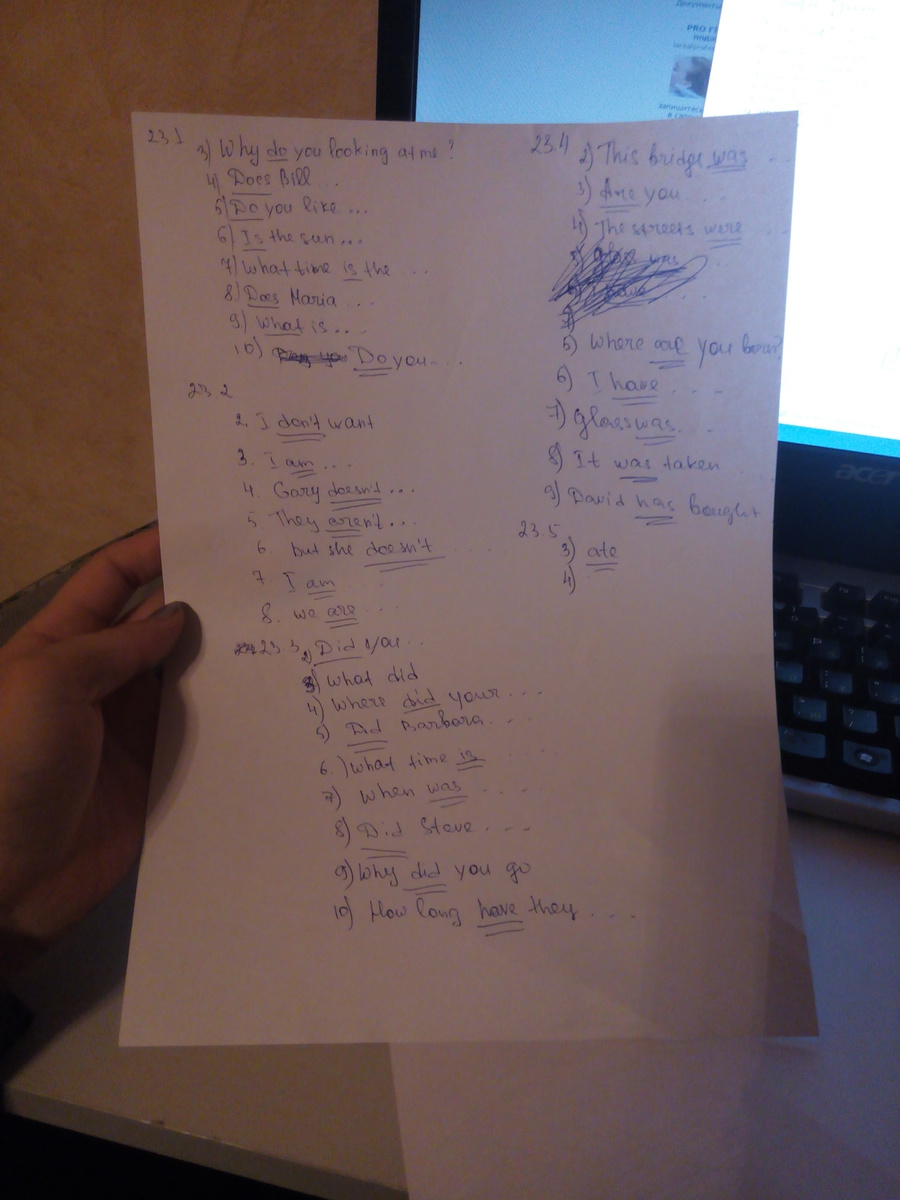 23.1
3) Why do you looking at me?
4) Does Bill ...
5) Do you like ...
6) Is the sun ...
7) What time is the ...
8) Does Maria ...
9) What is ...
10) Do you ...
23.2
2. I don't want
3. I am ...
4. Gary doesn't ...
5. They aren't ...
6. but she doesn't ...
7. I am ...
8. we are ...
23.3
2) Did you ..
3) What did
4) Where did your ...
5) Did Barbara ...
6.) What time is ...
7) When was ...
8) Did Steve ...
9) Why did you go
10) How long have they ...
23.4
2) This bridge was ...
3) Are you ...
4) The streets were ...
5) Where are you born?
6) I have ...
7) Glass was ...
8) It was taken
9) David has bought
23.5
3) ate
4)
Документы
PRO
acer